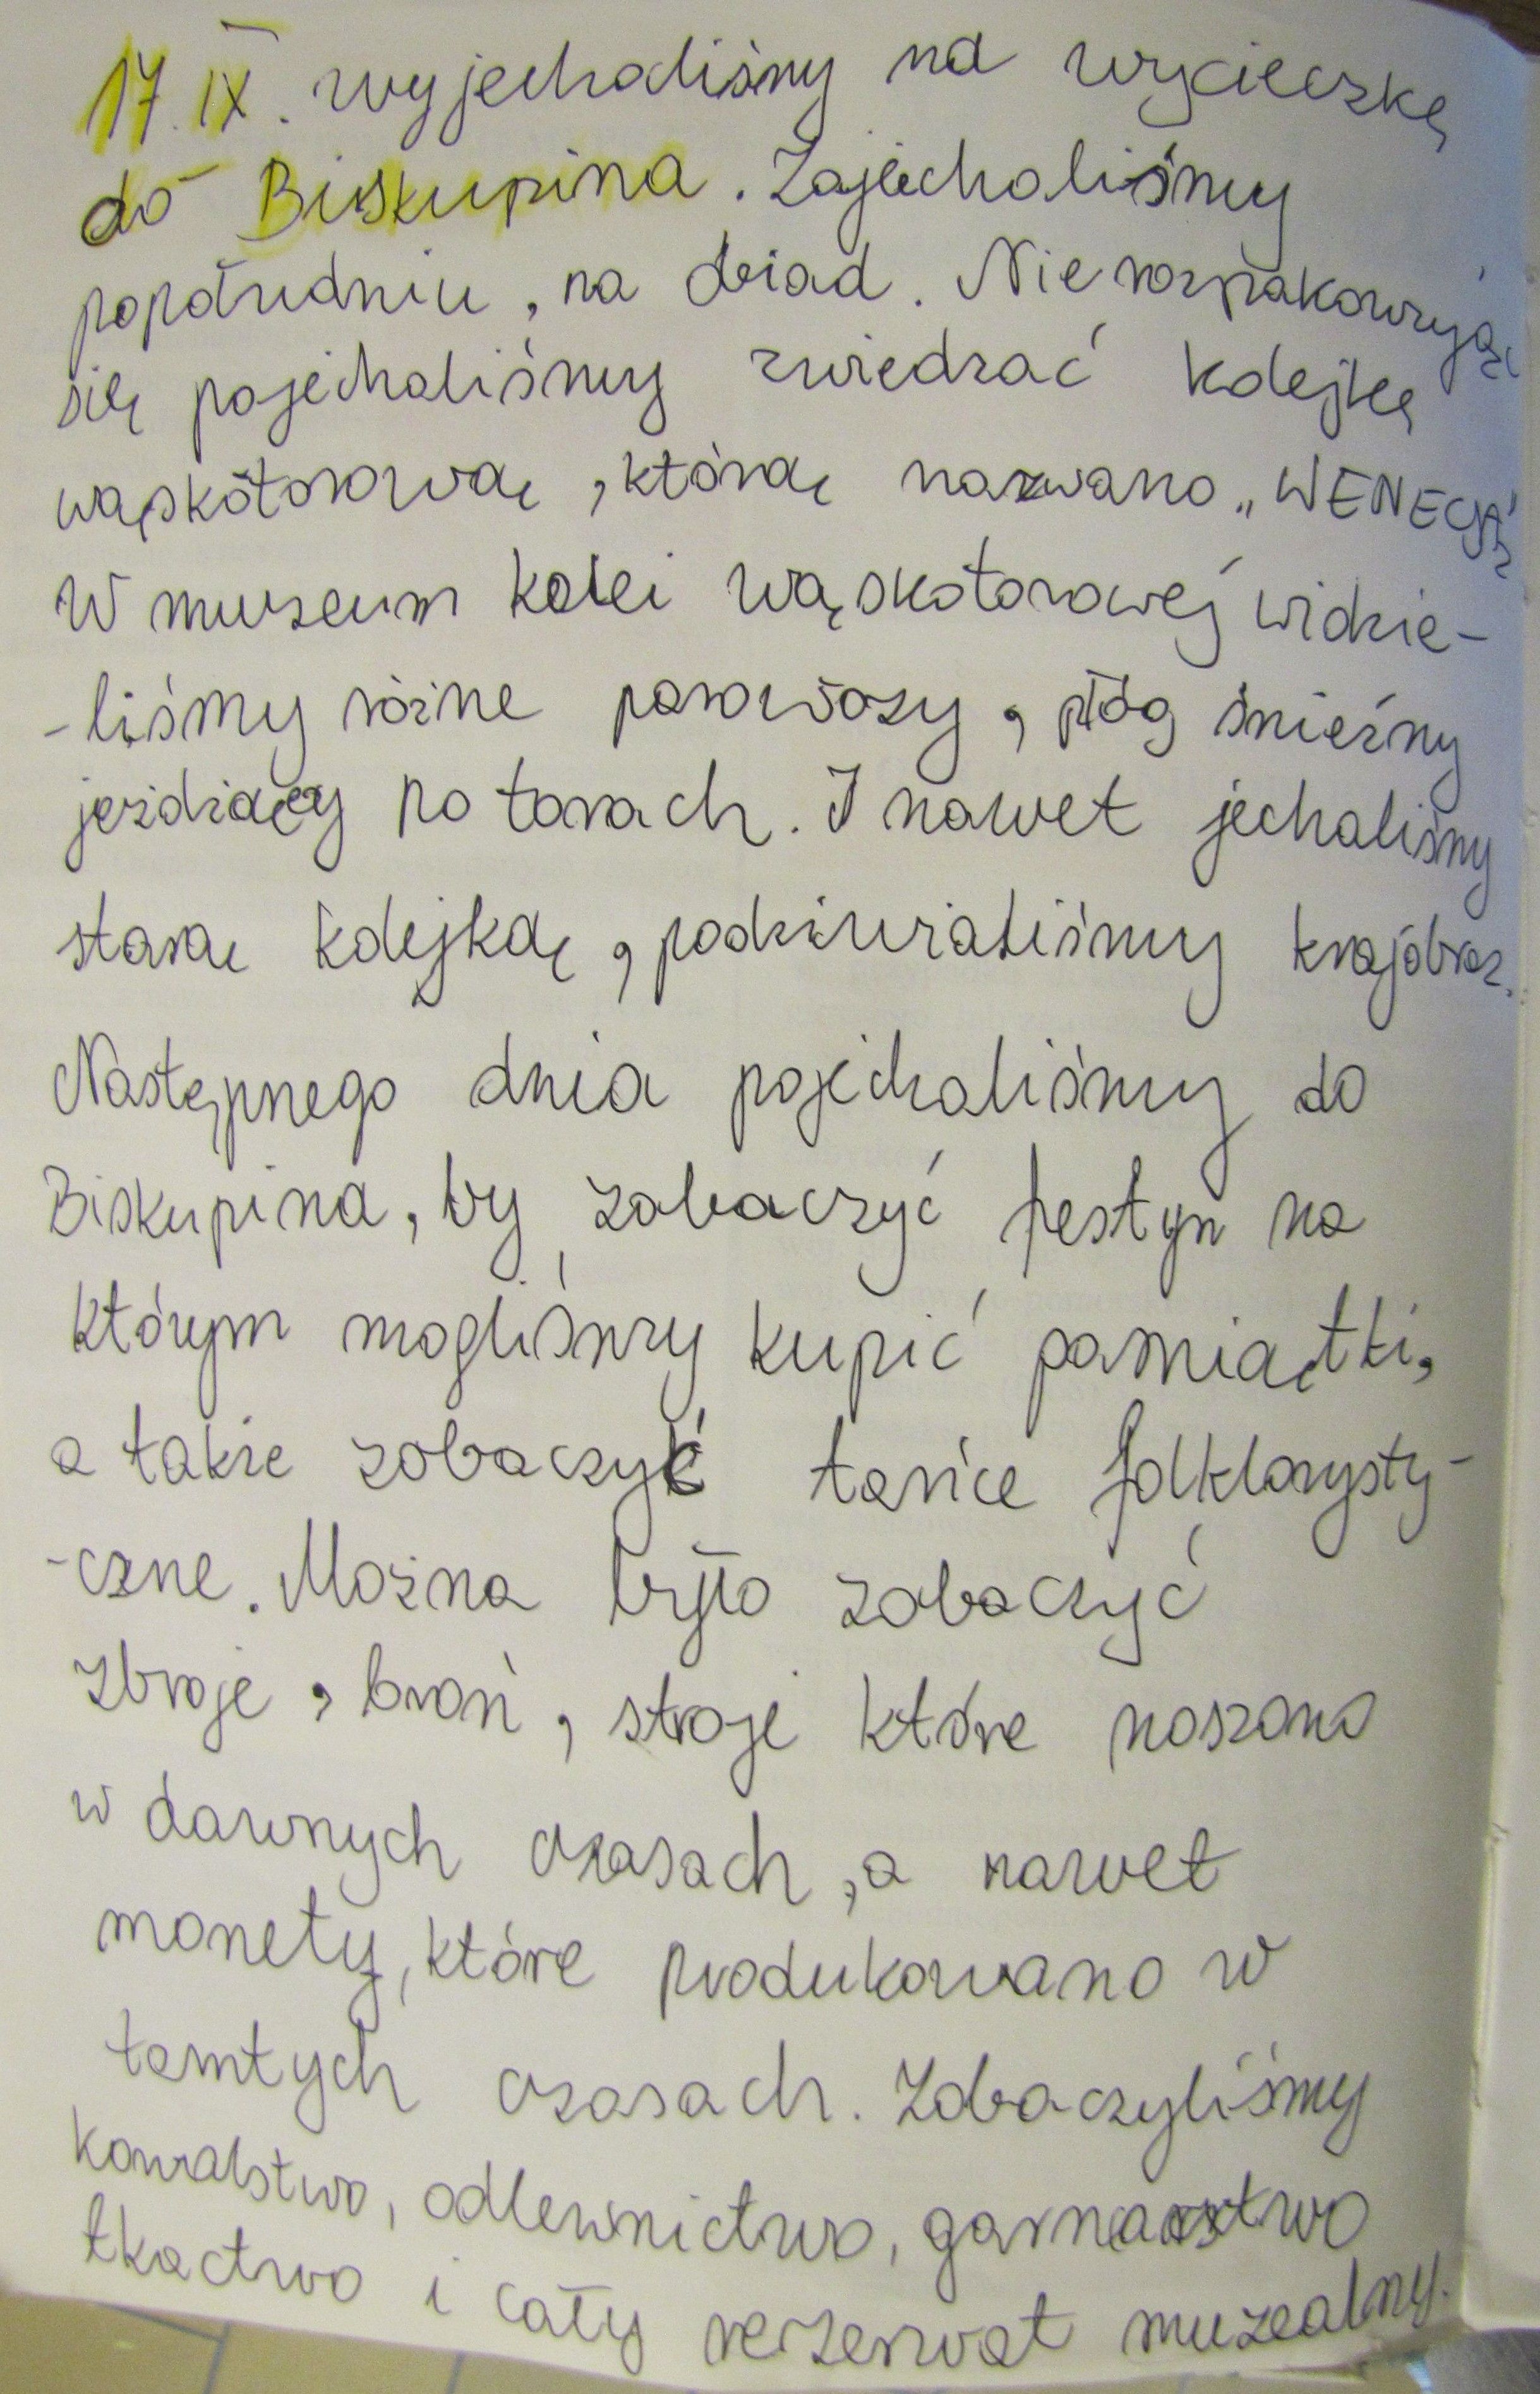 17.IX. wyjechaliśmy na wycieczkę
do Biskupina. Zajechaliśmy
popołudniu, na obiad. Nie rozpakowując
się pojechaliśmy zwiedzać kolejkę
wąskotorową, którą nazwano „WENECJĄ"
W muzeum kolei wąskotorowej widzie-
-liśmy różne parowozy, płóg śnieżny
jeżdżący po torach. I nawet jechaliśmy
starą kolejką, podziwialiśmy krajobraz.
Następnego dnia pojechaliśmy do
Biskupina, by zobaczyć festyn na
którym mogliśmy kupić pamiątki,
a także zobaczyć tańce folklorysty-
-czne. Można było zobaczyć
zbroje, broń, stroje które noszono
w dawnych czasach, a nawet
monety, które produkowano w
tamtych czasach. Zobaczyliśmy
kowalstwo, odlewnictwo, garnarstwo
tkactwo i cały rezerwat muzealny.